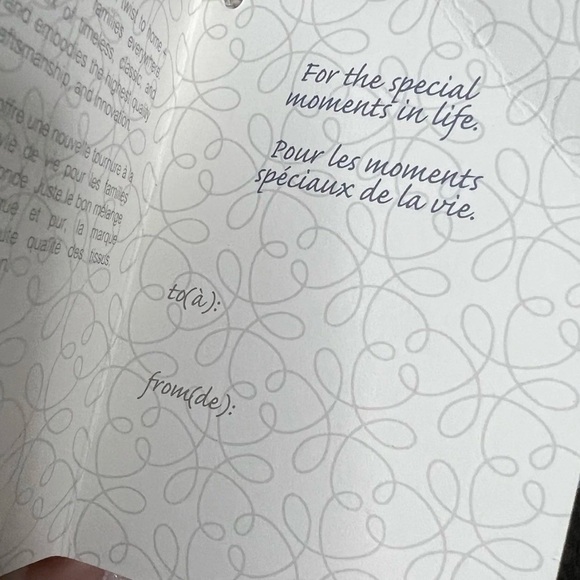 twist to home
families everywhere.
of timeless, classic and
and embodies the highest quality
craftsmanship and innovation.
offre une nouvelle tournure à la
de vie pour les familles
juste le bon mélange
et pur, la marque
qualité des tissus,
For the special
moments in life.
Pour les moments
spéciaux de la vie.
to(à):
from(de):